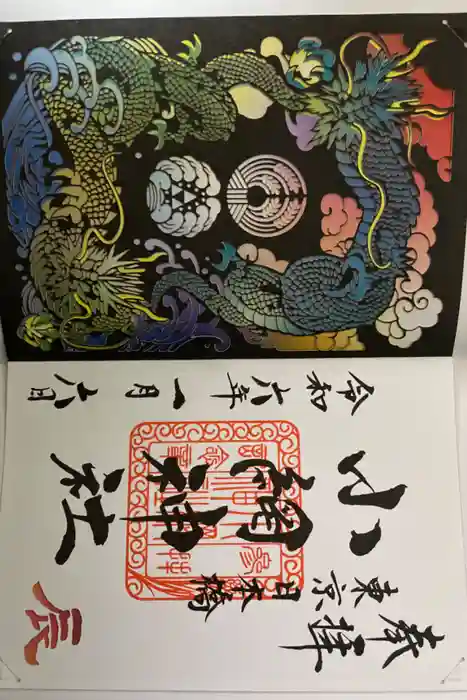 奉拝
辰
東京日本橋
小網神社
令和六年一月六日